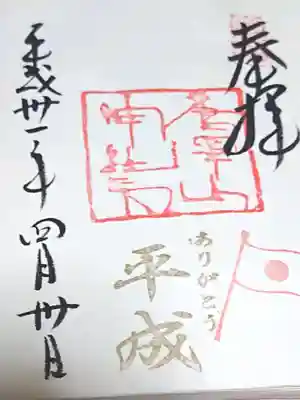 奉拝
ありがとう
平成
平成卅一年四月卅日